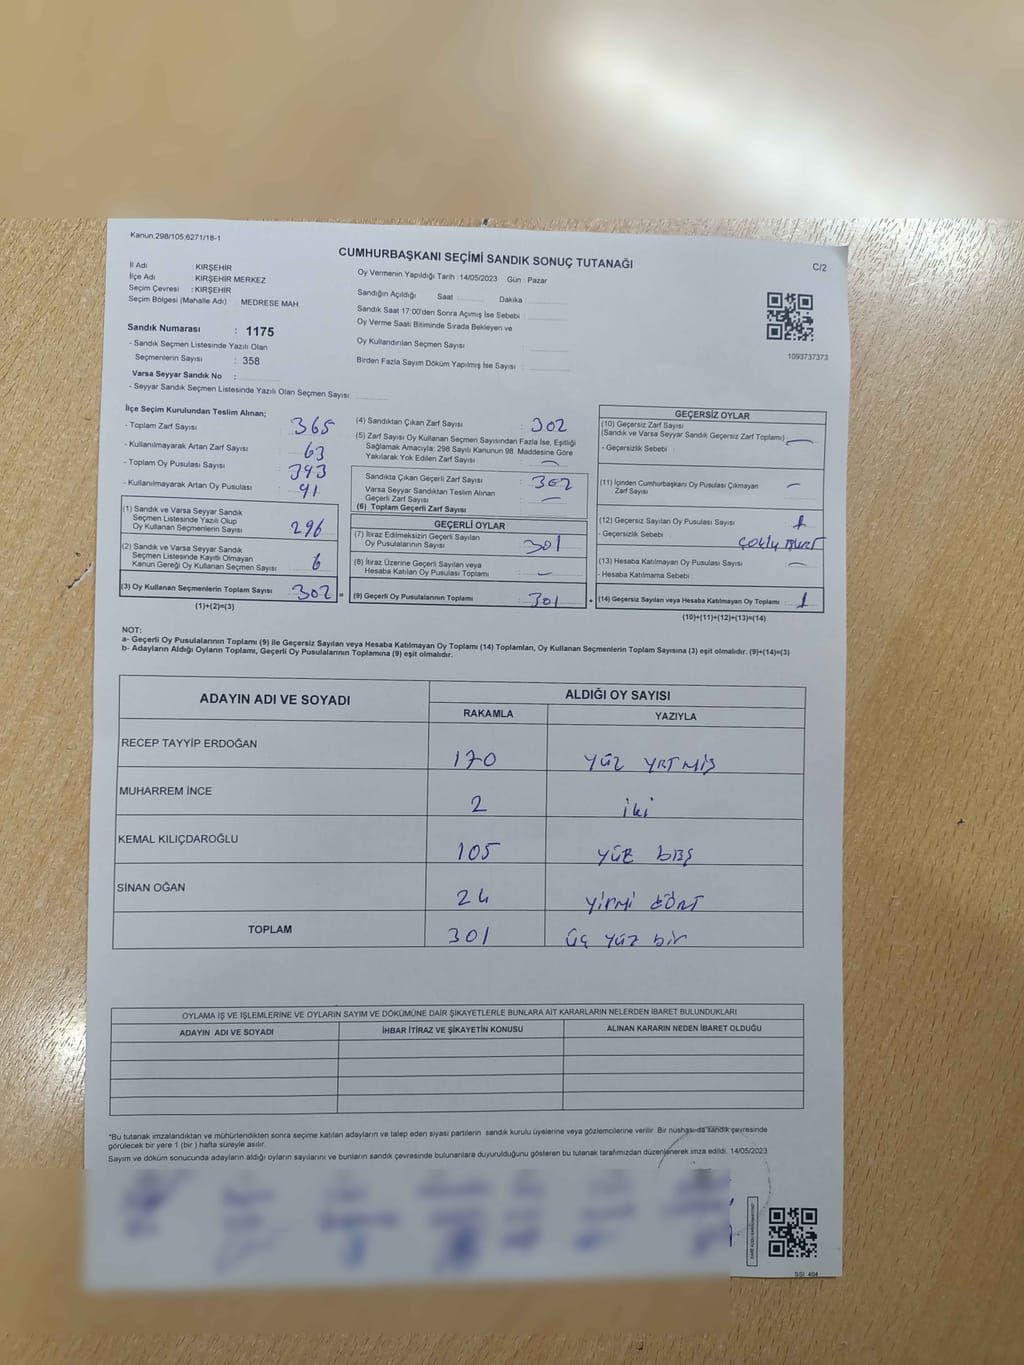 Kanun,298/105;6271/18-1
CUMHURBAŞKANI SEÇİMİ SANDIK SONUÇ TUTANAĞI
C/2
İl Adı : KIRŞEHİR
İlçe Adı : KIRŞEHİR MERKEZ
Seçim Çevresi : KIRŞEHİR
Seçim Bölgesi (Mahalle Adı) MEDRESE MAH.
Sandık Numarası : 1175
- Sandık Seçmen Listesinde Yazılı Olan
Seçmenlerin Sayısı : 358
Varsa Seyyar Sandık No :
- Seyyar Sandık Seçmen Listesinde Yazılı Olan Seçmen Sayısı:
Oy Vermenin Yapıldığı Tarih :14/05/2023 Gün : Pazar
Sandığın Açıldığı Saat Dakika :
Sandık Saat 17:00'den Sonra Açımış İse Sebebi :
Oy Verme Saati Bitiminde Sırada Bekleyen ve
Oy Kullandırılan Seçmen Sayısı :
Birden Fazla Sayım Döküm Yapılmış İse Sayısı :
1093737373
İlçe Seçim Kurulundan Teslim Alınan;
- Toplam Zarf Sayısı : 365
- Kullanılmayarak Artan Zarf Sayısı : 63
- Toplam Oy Pusulası Sayısı : 393
- Kullanılmayarak Artan Oy Pusulası : 91
(1) Sandık ve Varsa Seyyar Sandık
Seçmen Listesinde Yazılı Olup
Oy Kullanan Seçmenlerin Sayısı : 296
(2) Sandık ve Varsa Seyyar Sandık
Seçmen Listesinde Kayıtlı Olmayan
Kanun Gereği Oy Kullanan Seçmen Sayısı : 6
(3) Oy Kullanan Seçmenlerin Toplam Sayısı : 302 =
(1)+(2)=(3)
(4) Sandıktan Çıkan Zarf Sayısı : 302
(5) Zarf Sayısı Oy Kullanan Seçmen Sayısından Fazla İse, Eşitliği
Sağlamak Amacıyla; 298 Sayılı Kanunun 98. Maddesine Göre
Yakılarak Yok Edilen Zarf Sayısı : —
Sandıkta Çıkan Geçerli Zarf Sayısı : 302
Varsa Seyyar Sandıktan Teslim Alınan
Geçerli Zarf Sayısı : —
(6) Toplam Geçerli Zarf Sayısı
GEÇERLİ OYLAR
(7) İtiraz Edilmeksizin Geçerli Sayılan
Oy Pusulalarının Sayısı : 301
(8) İtiraz Üzerine Geçerli Sayılan veya
Hesaba Katılan Oy Pusulası Toplamı : —
(9) Geçerli Oy Pusulalarının Toplamı : 301 +
GEÇERSİZ OYLAR
(10) Geçersiz Zarf Sayısı
(Sandık ve Varsa Seyyar Sandık Geçersiz Zarf Toplamı) : —
- Geçersizlik Sebebi :
(11) İçinden Cumhurbaşkanı Oy Pusulası Çıkmayan
Zarf Sayısı : —
(12) Geçersiz Sayılan Oy Pusulası Sayısı : 1
- Geçersizlik Sebebi : ÇOKLU
(13) Hesaba Katılmayan Oy Pusulası Sayısı : —
- Hesaba Katılmama Sebebi :
(14) Geçersiz Sayılan veya Hesaba Katılmayan Oy Toplamı : 1
(10)+(11)+(12)+(13)=(14)
NOT:
a- Geçerli Oy Pusulalarının Toplamı (9) ile Geçersiz Sayılan veya Hesaba Katılmayan Oy Toplamı (14) Toplamları, Oy Kullanan Seçmenlerin Toplam Sayısına (3) eşit olmalıdır. (9)+(14)=(3)
b- Adayların Aldığı Oyların Toplamı, Geçerli Oy Pusulalarının Toplamına (9) eşit olmalıdır.
ADAYIN ADI VE SOYADI ALDIĞI OY SAYISI
RAKAMLA YAZIYLA
RECEP TAYYİP ERDOĞAN 170 YÜZ YETMİŞ
MUHARREM İNCE 2 iki
KEMAL KILIÇDAROĞLU 105 YÜZ BEŞ
SİNAN OĞAN 24 YİRMİ DÖRT
TOPLAM 301 ÜÇ YÜZ bir
OYLAMA İŞ VE İŞLEMLERİNE VE OYLARIN SAYIM VE DÖKÜMÜNE DAİR ŞİKAYETLERLE BUNLARA AİT KARARLARIN NELERDEN İBARET BULUNDUKLARI
ADAYIN ADI VE SOYADI İHBAR İTİRAZ VE ŞİKAYETİN KONUSU ALINAN KARARIN NEDEN İBARET OLDUĞU
*Bu tutanak imzalandıktan ve mühürlendikten sonra seçime katılan adayların ve talep eden siyasi partilerin sandık kurulu üyelerine veya gözlemcilerine verilir. Bir nüshası da sandık çevresinde
görülecek bir yere 1 (bir ) hafta süreyle asılır.
Sayım ve döküm sonucunda adayların aldığı oyların sayılarını ve bunların sandık çevresinde bulunanlara duyurulduğunu gösteren bu tutanak tarafımızdan düzenlenerek imza edildi. 14/05/2023
SSI :404